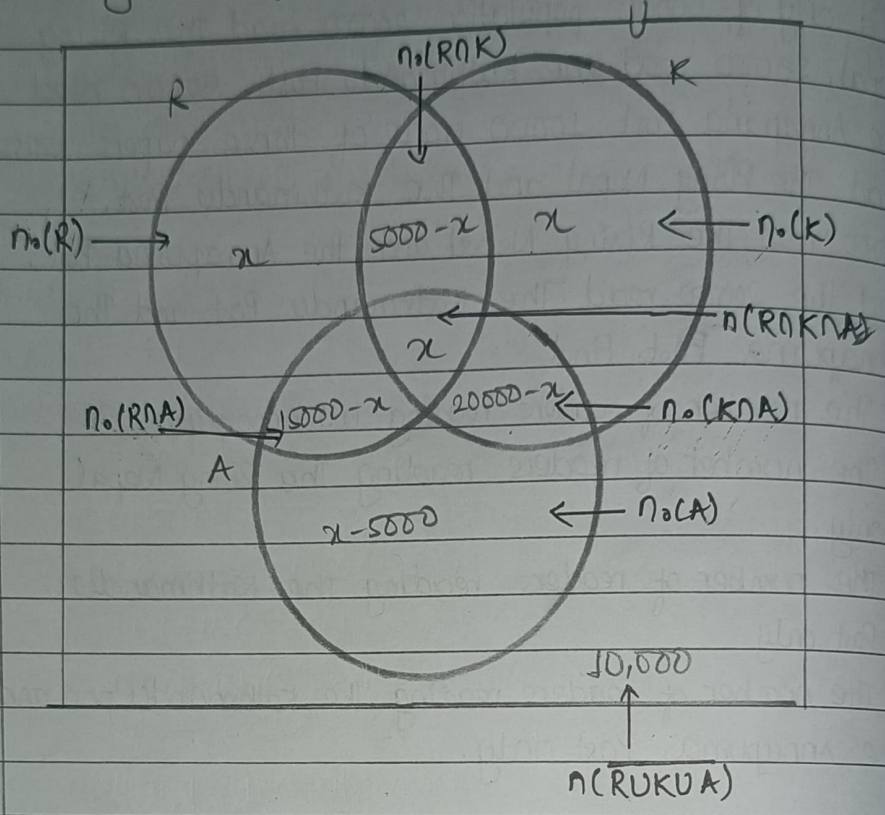 U
n₀(R∩K)
R
K
n₀(R)
x
5000-x
x
n₀(K)
n(R∩K∩A)
x
n₀(R∩A)
15000-x
20000-x
n₀(K∩A)
A
x-5000
n₀(A)
10,000
n(R̅U̅K̅U̅A̅)